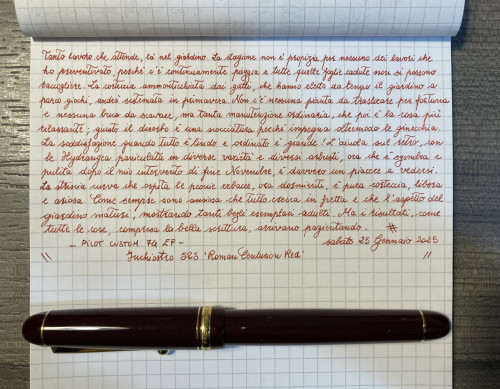 Tanto lavoro che attende, là nel giardino. La stagione non è propizia per nessuno dei lavori che
ho preventivato, perché c'è continuamente pioggia e tutte quelle foglie cadute non si possono
raccogliere. La corteccia ammonticchiata dai gatti, che hanno eletto da tempo il giardino a
parco giochi, andrà sistemata in primavera. Non c'è nessuna pianta da traslocare per fortuna
e nessuna buca da scavare, ma tanta manutenzione ordinaria, che poi è la cosa più
rilassante; giusto il diserbo è una scocciatura perché impegna oltremodo le ginocchia.
La soddisfazione quando tutto è lindo e ordinato è grande! L'aiuola sul retro, con
le Hydrangea paniculata in diverse varietà e diversi arbusti, ora che è sgombra e
pulita dopo il mio intervento di fine Novembre, è davvero un piacere a vedersi.
La striscia curva che ospita le peonie erbacee, ora dormienti, è pura corteccia, fibrosa
e ariosa. Come sempre sono ansiosa che tutto cresca in fretta e che l'aspetto del
giardino maturi, mostrando tanti begli esemplari adulti. Ma i risultati, come
tutte le cose, compresa la bella scrittura, arrivano pazientando. #
- PILOT CUSTOM 74 EF - sabato 25 Gennaio 2025
" Inchiostro 3&5 'Roman Centurion Red' "